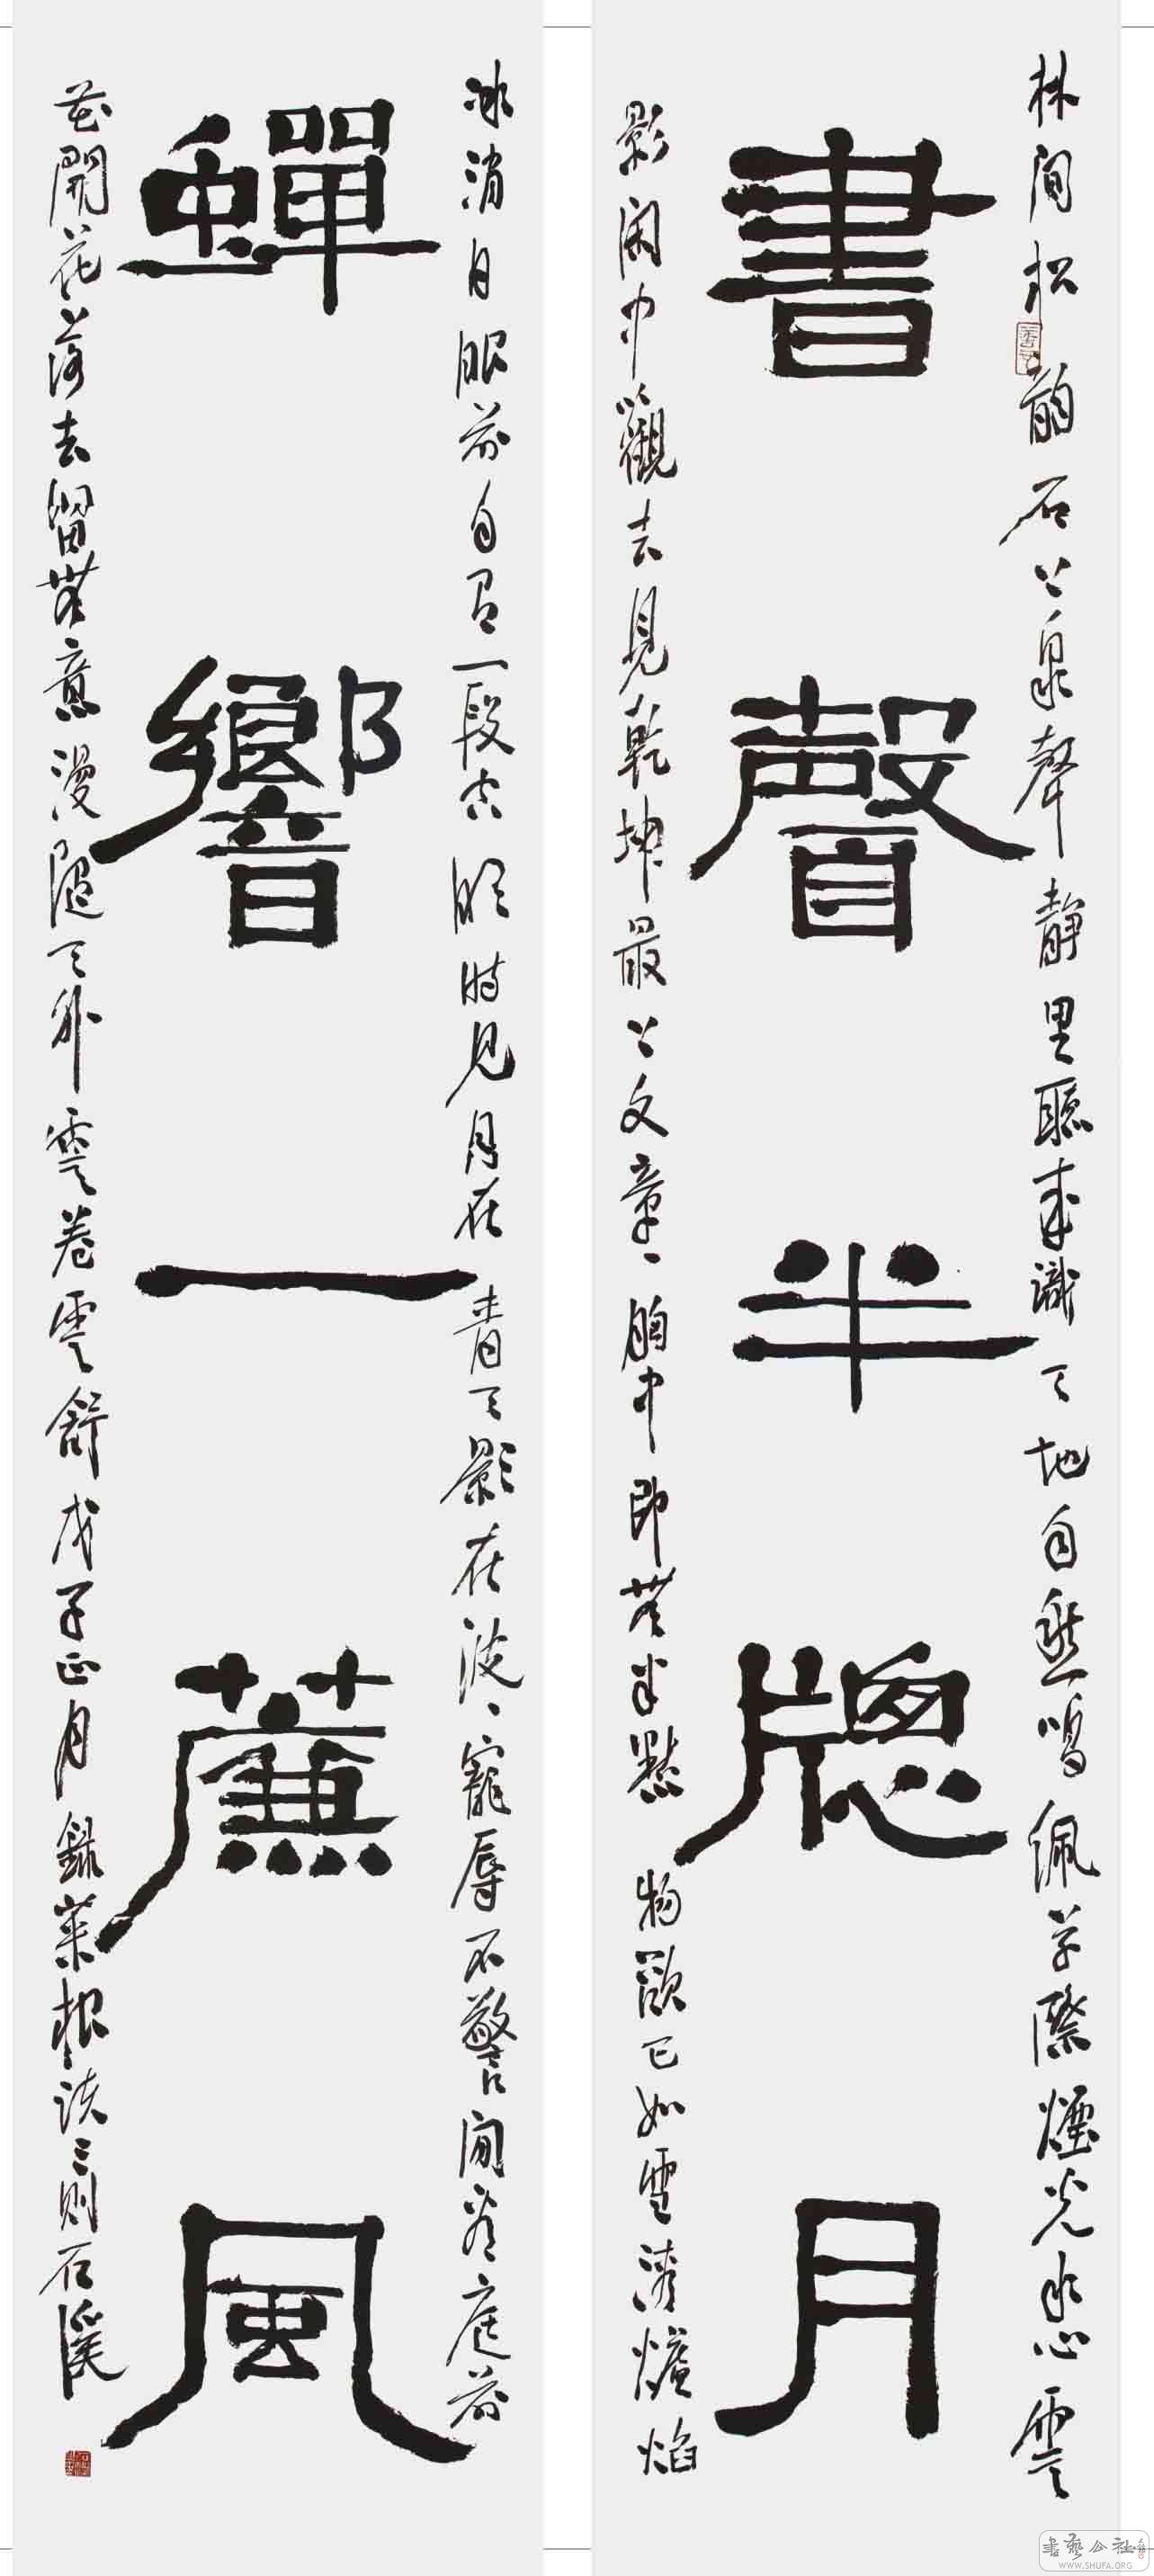 林間松韻石上泉聲靜里聽來識天地自然鳴佩草際煙光水心雲
書聲半牕月
影闲中觀去見乾坤最上文章、胸中即無半點物欲已如雪消爐焰
冰消日眼前自有一段空明時見月在青天影在波、寵辱不警閒看庭前
蟬響一薕風
花開花落去留無意漫隨天外雲卷雲舒戊子正月錄菜根談三則石溪
書藝公社
WWW.SHUFA.ORG